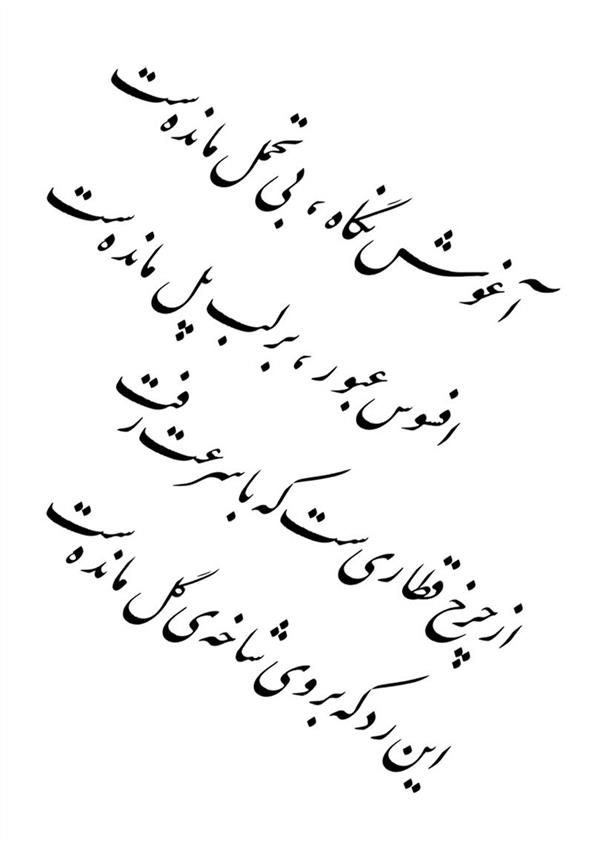 آغوش نگاه، بی تحمل مانده‌ست
افسوس عبور، بر لب پل مانده‌ست
از چرخ قطاری‌ست که با سرعت رفت
این رد که بروی شاخه‌ی گل مانده‌ست